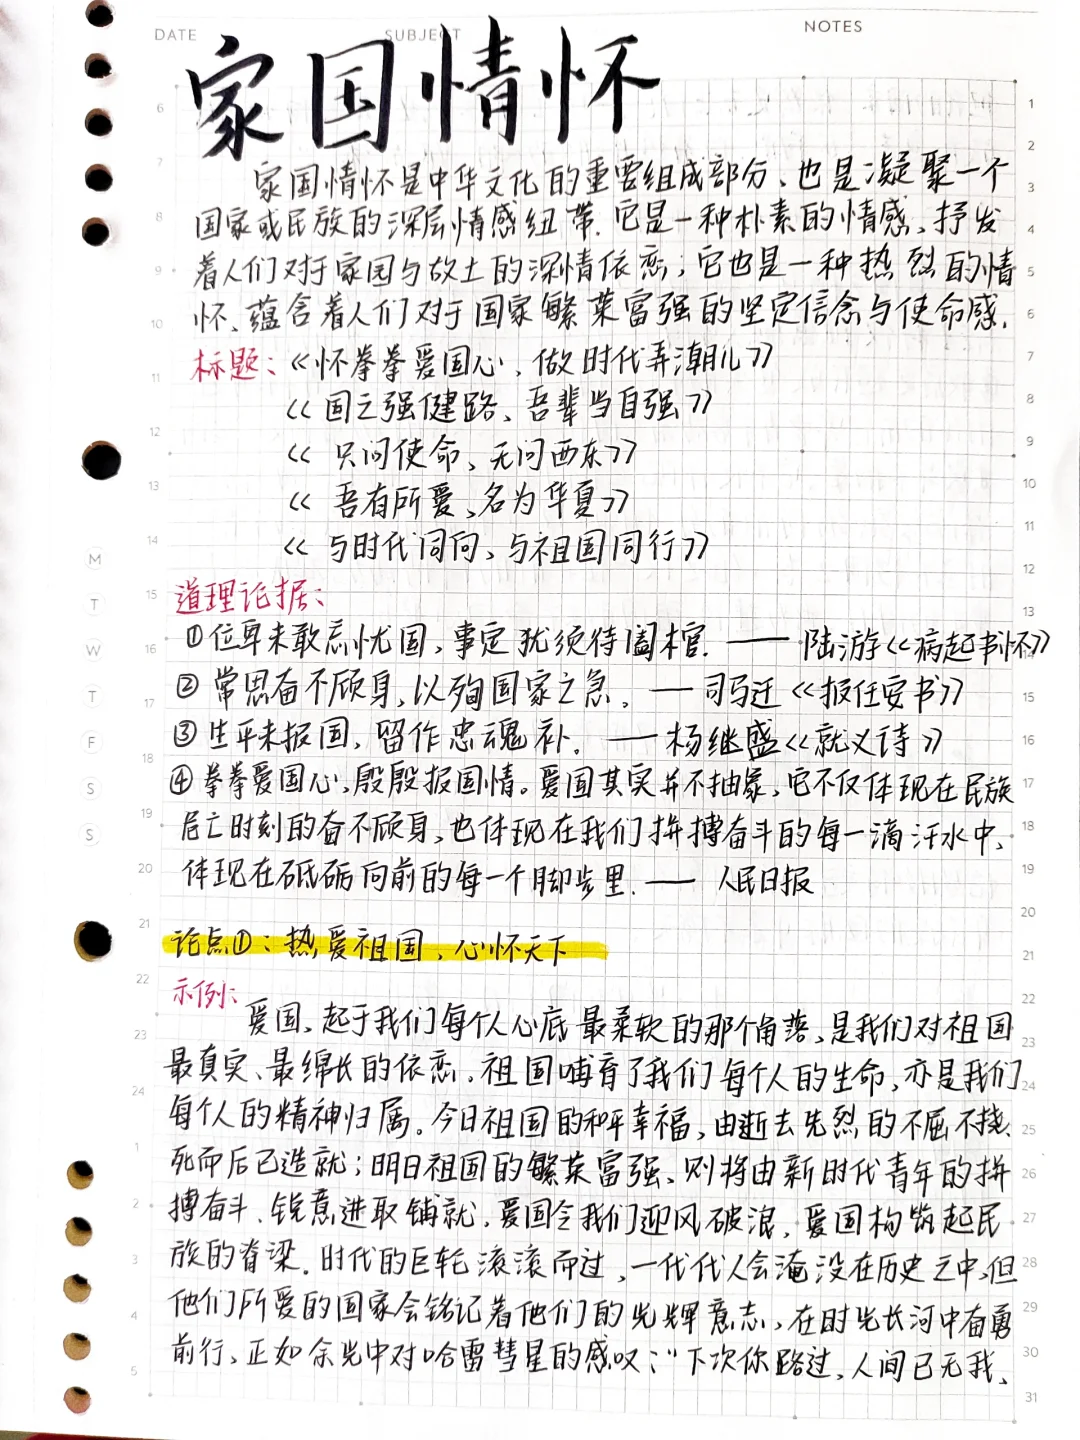 DATE SUBJECT NOTES
家国情怀
家国情怀是中华文化的重要组成部分、也是凝聚一个
国家或民族的深层情感纽带.它是一种朴素的情感、抒发
着人们对于家园与故土的深情依恋;它也是一种热烈的情
怀、蕴含着人们对于国家繁荣富强的坚定信念与使命感.
标题:《怀拳拳爱国心、做时代弄潮儿》
《国之强健路、吾辈当自强》
《只问使命、无问西东》
《吾有所爱、名为华夏》
《与时代同向、与祖国同行》
道理论据:
①位卑未敢忘忧国,事定犹须待阖棺.——陆游《病起书怀》
②常思奋不顾身,以殉国家之急.——司马迁《报任安书》
③生平未报国,留作忠魂补.——杨继盛《就义诗》
④拳拳爱国心,殷殷报国情。爱国其实并不抽象,它不仅体现在民族
危亡时刻的奋不顾身,也体现在我们拼搏奋斗的每一滴汗水中、
体现在砥砺向前的每一个脚步里.——人民日报
论点①:热爱祖国、心怀天下
示例:
爱国、起于我们每个人心底最柔软的那个角落、是我们对祖国
最真实、最绵长的依恋.祖国哺育了我们每个人的生命,亦是我们
每个人的精神归属。今日祖国的和平幸福,由逝去先烈的不屈不挠、
死而后已造就;明日祖国的繁荣富强、则将由新时代青年的拼
搏奋斗、锐意进取铺就.爱国令我们迎风破浪,爱国构筑起民
族的脊梁.时代的巨轮滚滚而过,一代代人会淹没在历史之中,但
他们所爱的国家会铭记着他们的光辉意志、在时光长河中奋勇
前行、正如余光中对哈雷彗星的感叹:"下次你路过,人间已无我、